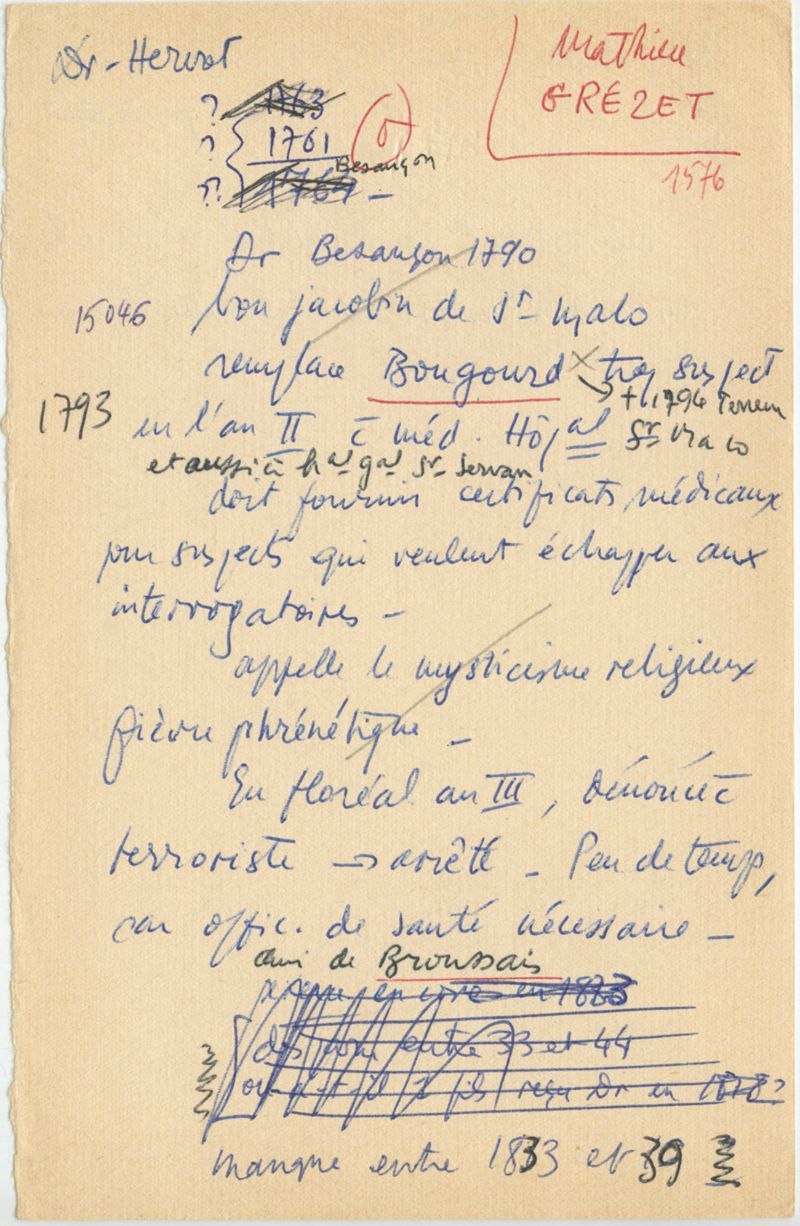 Dr - Hervot
Mathieu
GRÉZET
1576
? 1763
? 1761
Besançon
?? 1764 -
Dr Besançon 1790
15046
bon jacobin de St- Malo
remplace Bougourd × trop suspect
+ 1794 Terreur
1793
en l'an II c méd. Hôpal St Malo
et aussi à hal gal St- Servan
doit fournir certificats médicaux
pour suspects qui veulent échapper aux
interrogatoires -
appelle le mysticisme religieux
fièvre phrénétique -
En floréal an III, dénoncé c
terroriste → arrêté - Peu de temps,
car offic. de santé nécessaire -
ami de Broussais
encore en 1833
entre 33 et 44
a-t-il 1 fils reçu Dr en 1818?
manque entre 1833 et 39